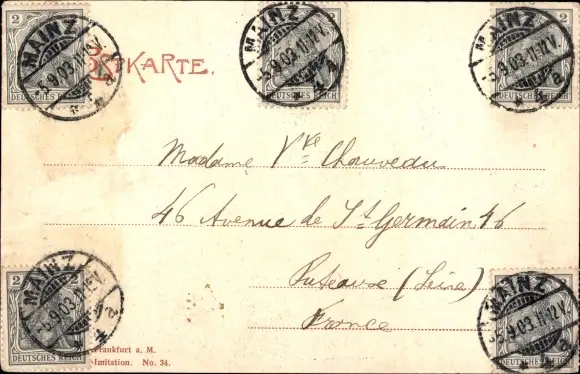 2 2 2
MAINZ MAINZ MAINZ
-5.9.03.11-12V. -5.9.03.11-12V. -5.9.03.11-12V.
DEUTSCHES REICH DEUTSCHES REICH DEUTSCHES REICH
a a a
OSTKARTE.
Madame Vve Chauveau
46 Avenue de St Germain 46
Puteaux (Seine)
France
2
MAINZ MAINZ
-5.9.03.11-12V. 5.9.03.11-12V.
a a
DEUTSCHES REICH DEUTSCHES REICH
Frankfurt a. M.
-Imitation. No. 34.